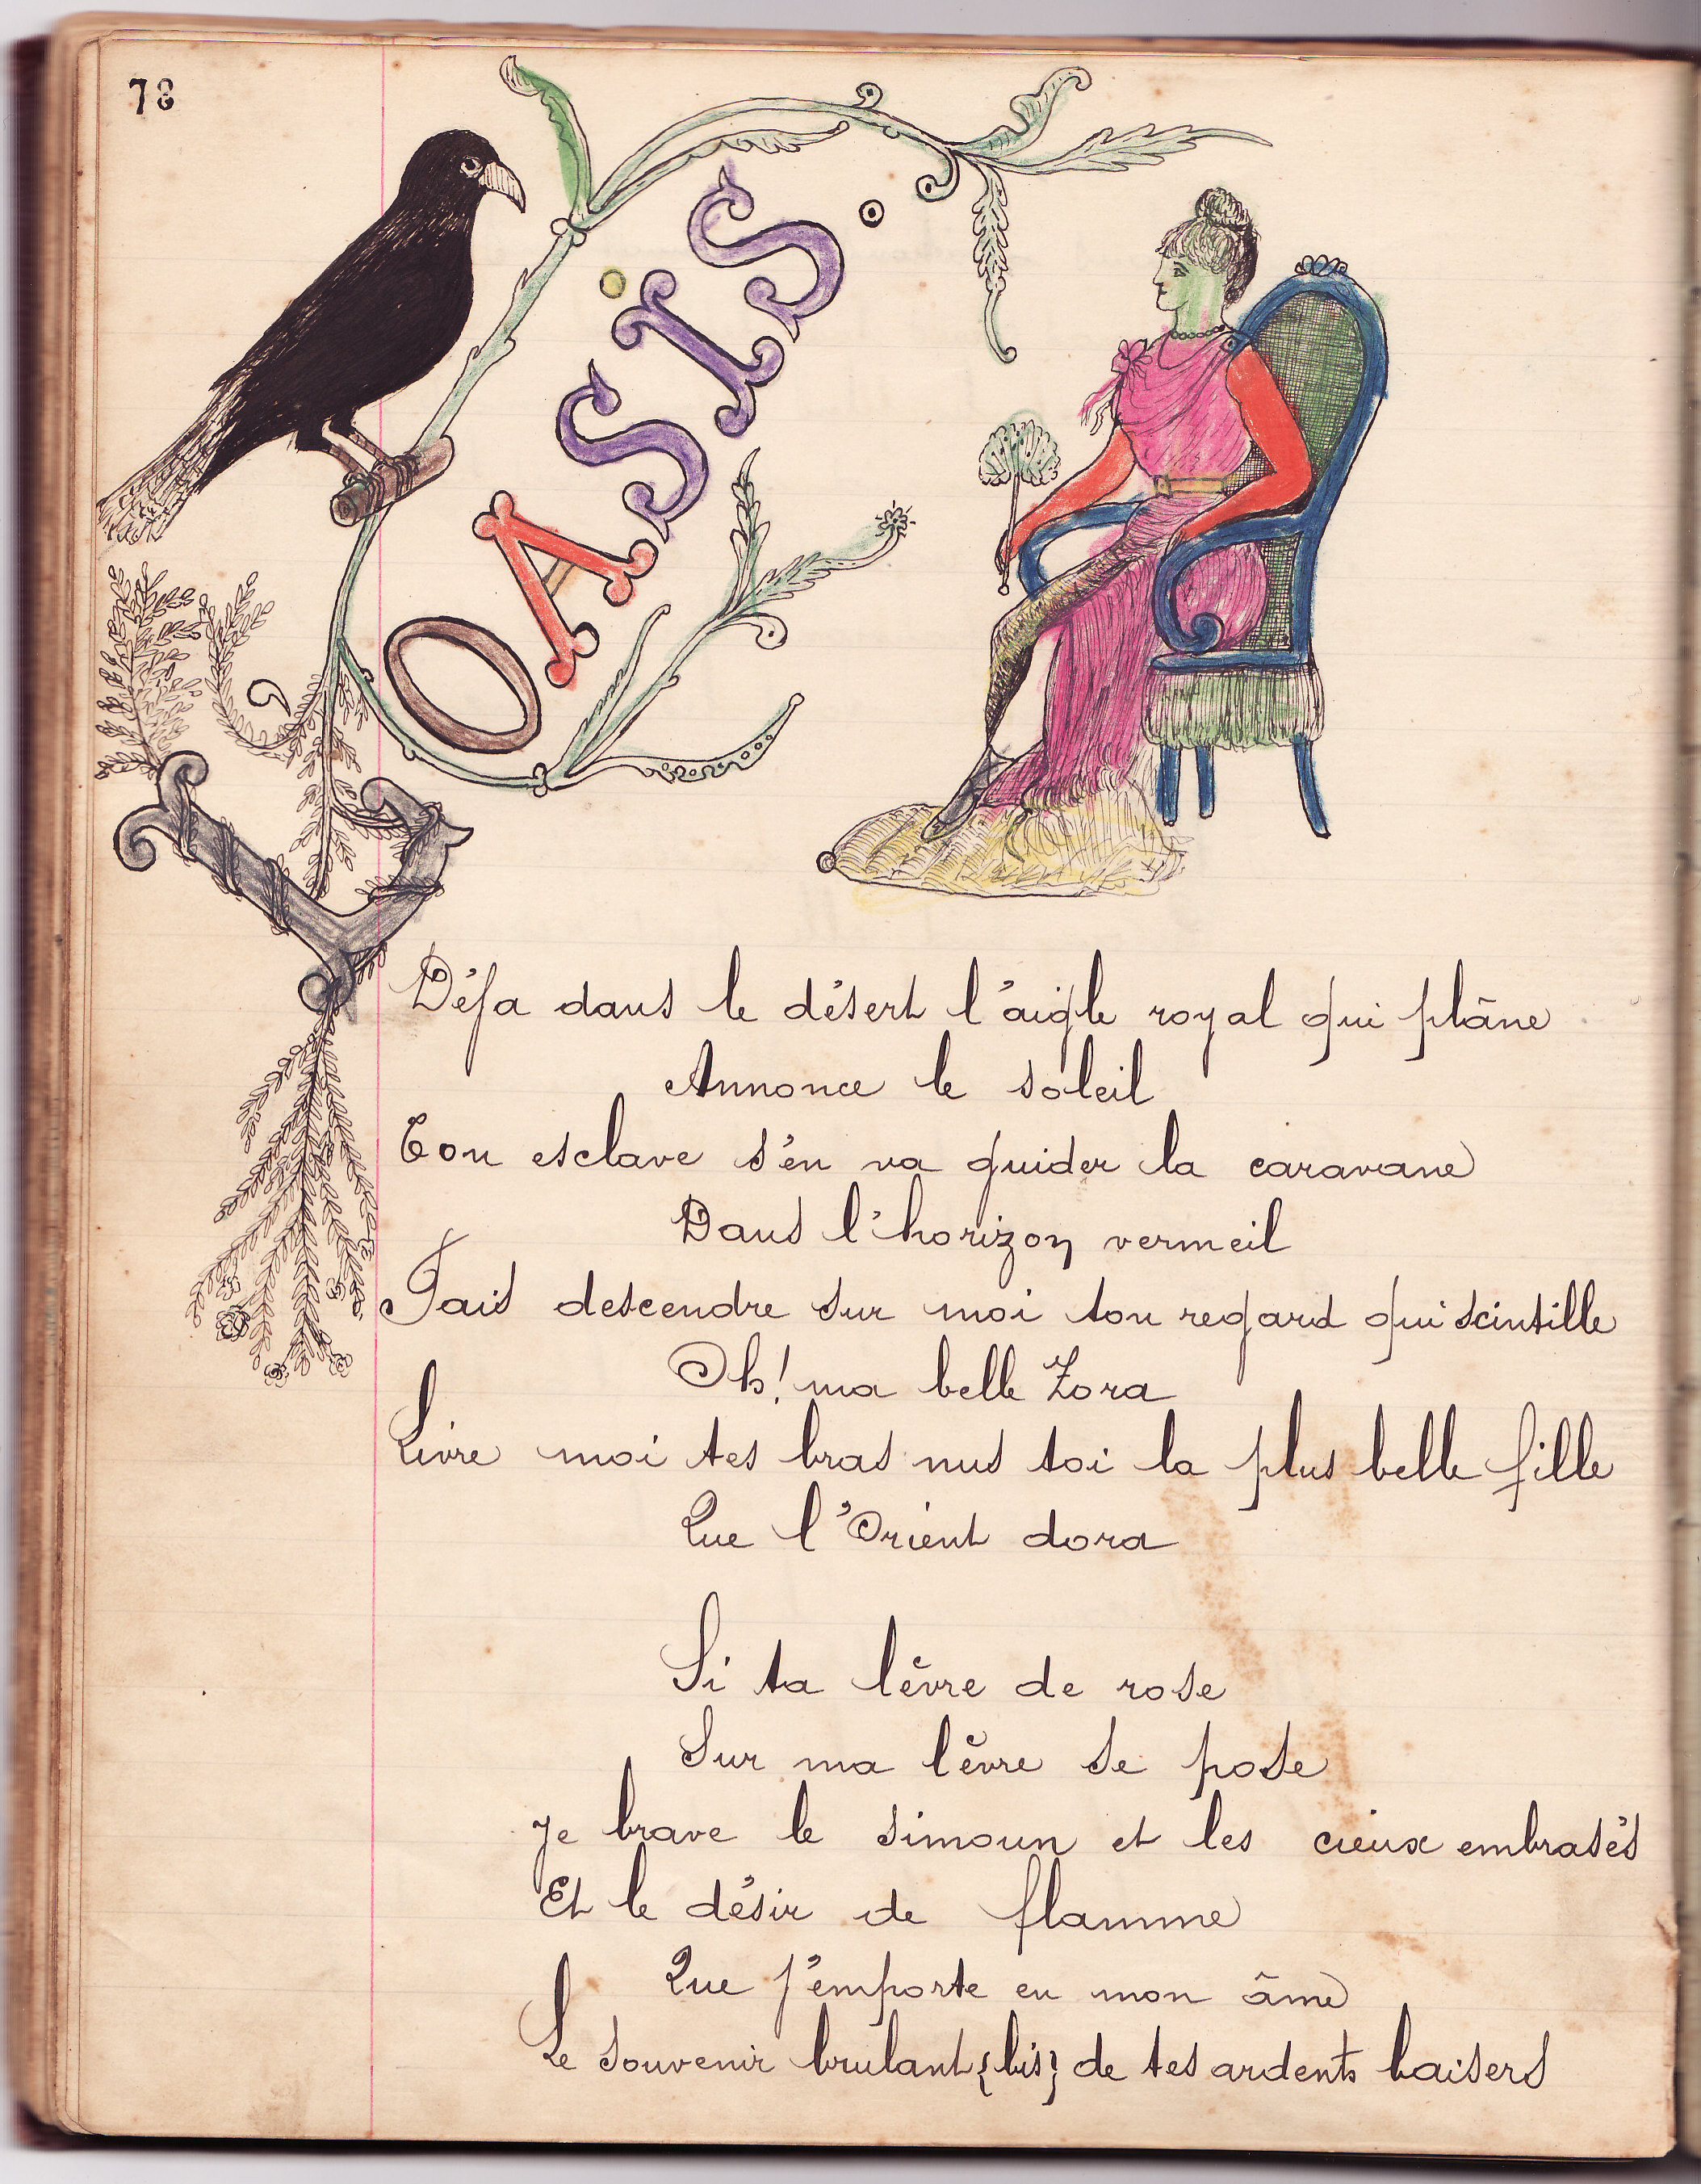 78
OASIS.
Déja dans le désert l'aigle royal qui plâne
Annonce le soleil
Ton esclave s'en va guider la caravane
Dans l'horizon vermeil
Fais descendre sur moi ton regard qui scintille
Oh! ma belle Zora
Livre moi tes bras nus toi la plus belle fille
Que l'Orient dora
Si ta lèvre de rose
Sur ma lèvre se pose
Je brave le simoun et les cieux embrasés
Et le désir de flamme
Que j'emporte en mon âme
Le souvenir brulant {bis} de tes ardents baisers